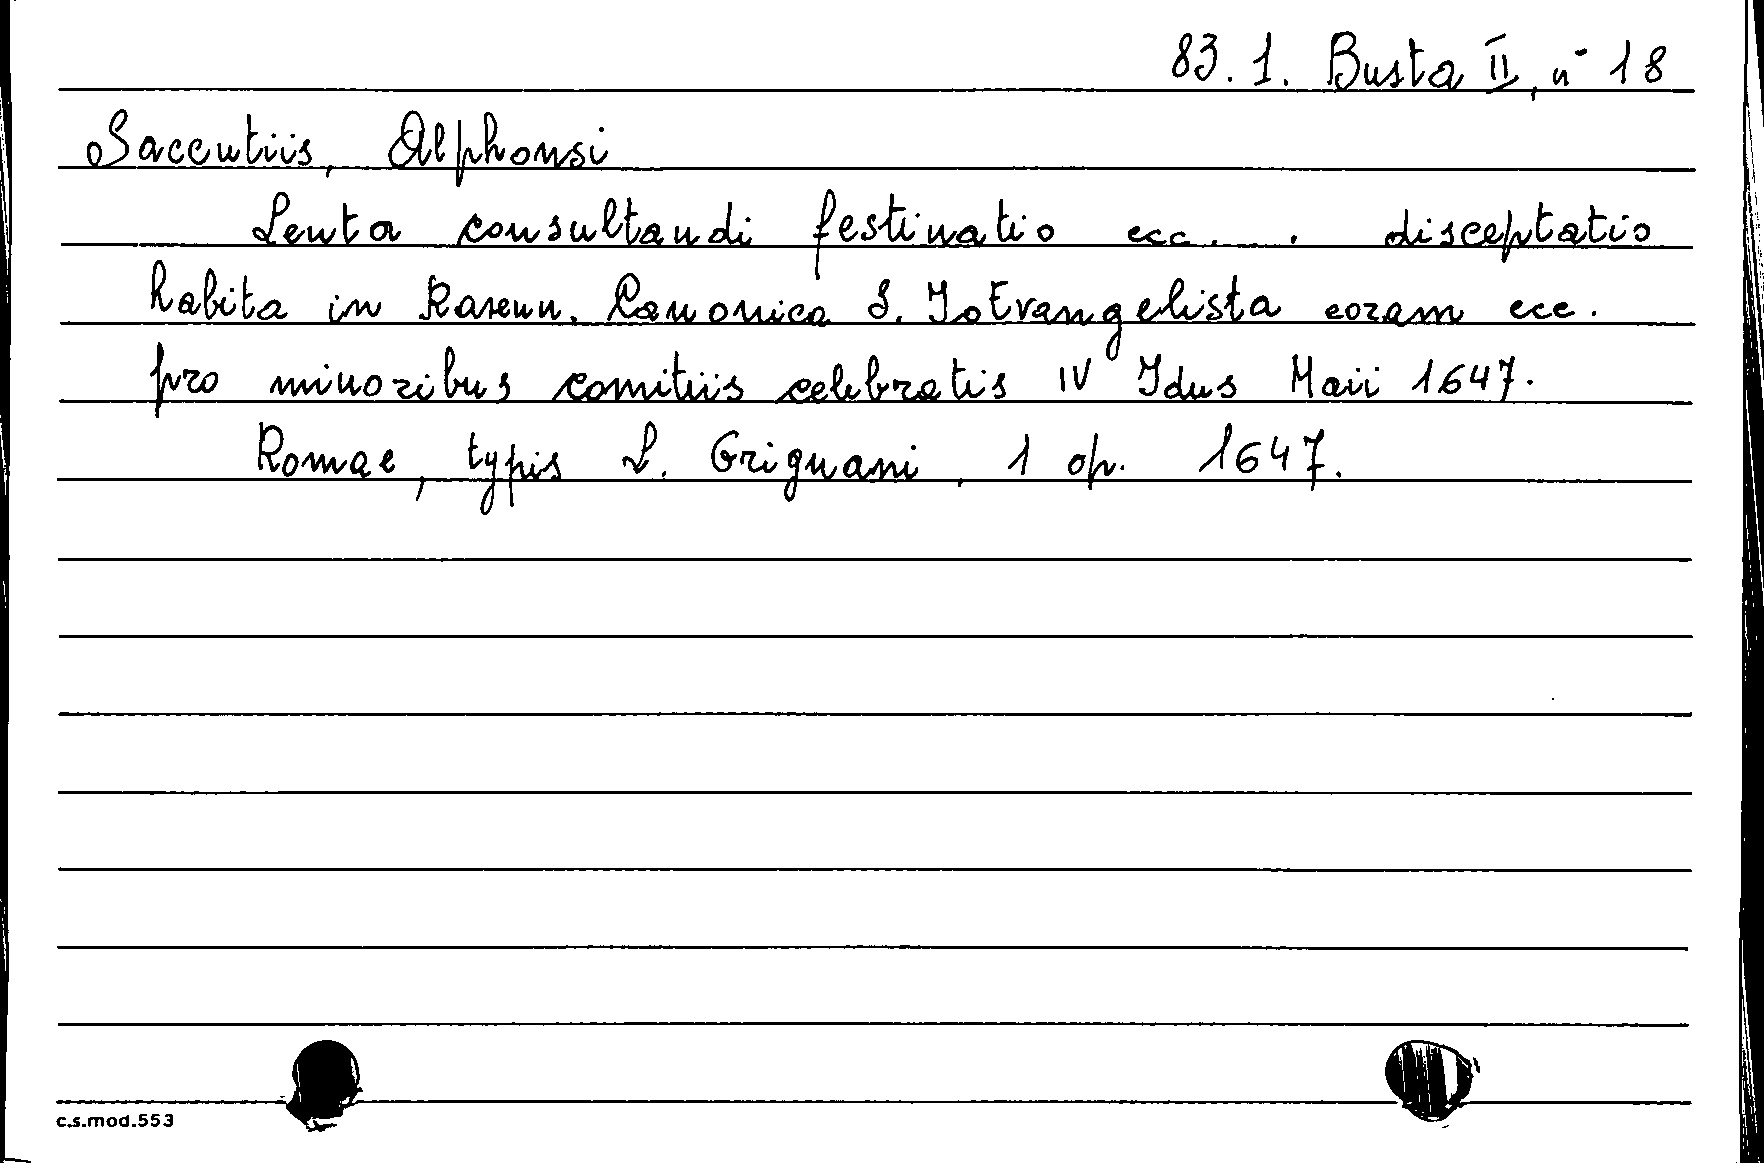 83.1. Busta II, n° 18
Saccutiis, Alphonsi
Lenta consultandi festinatio ecc. . disceptatio
habita in Ravenn. Canonica S. Jo Evangelista coram ecc.
pro minoribus comitiis celebratis IV Idus Maii 1647.
Romae, typis L. Grignani, 1 op. 1647.
c.s.mod.553